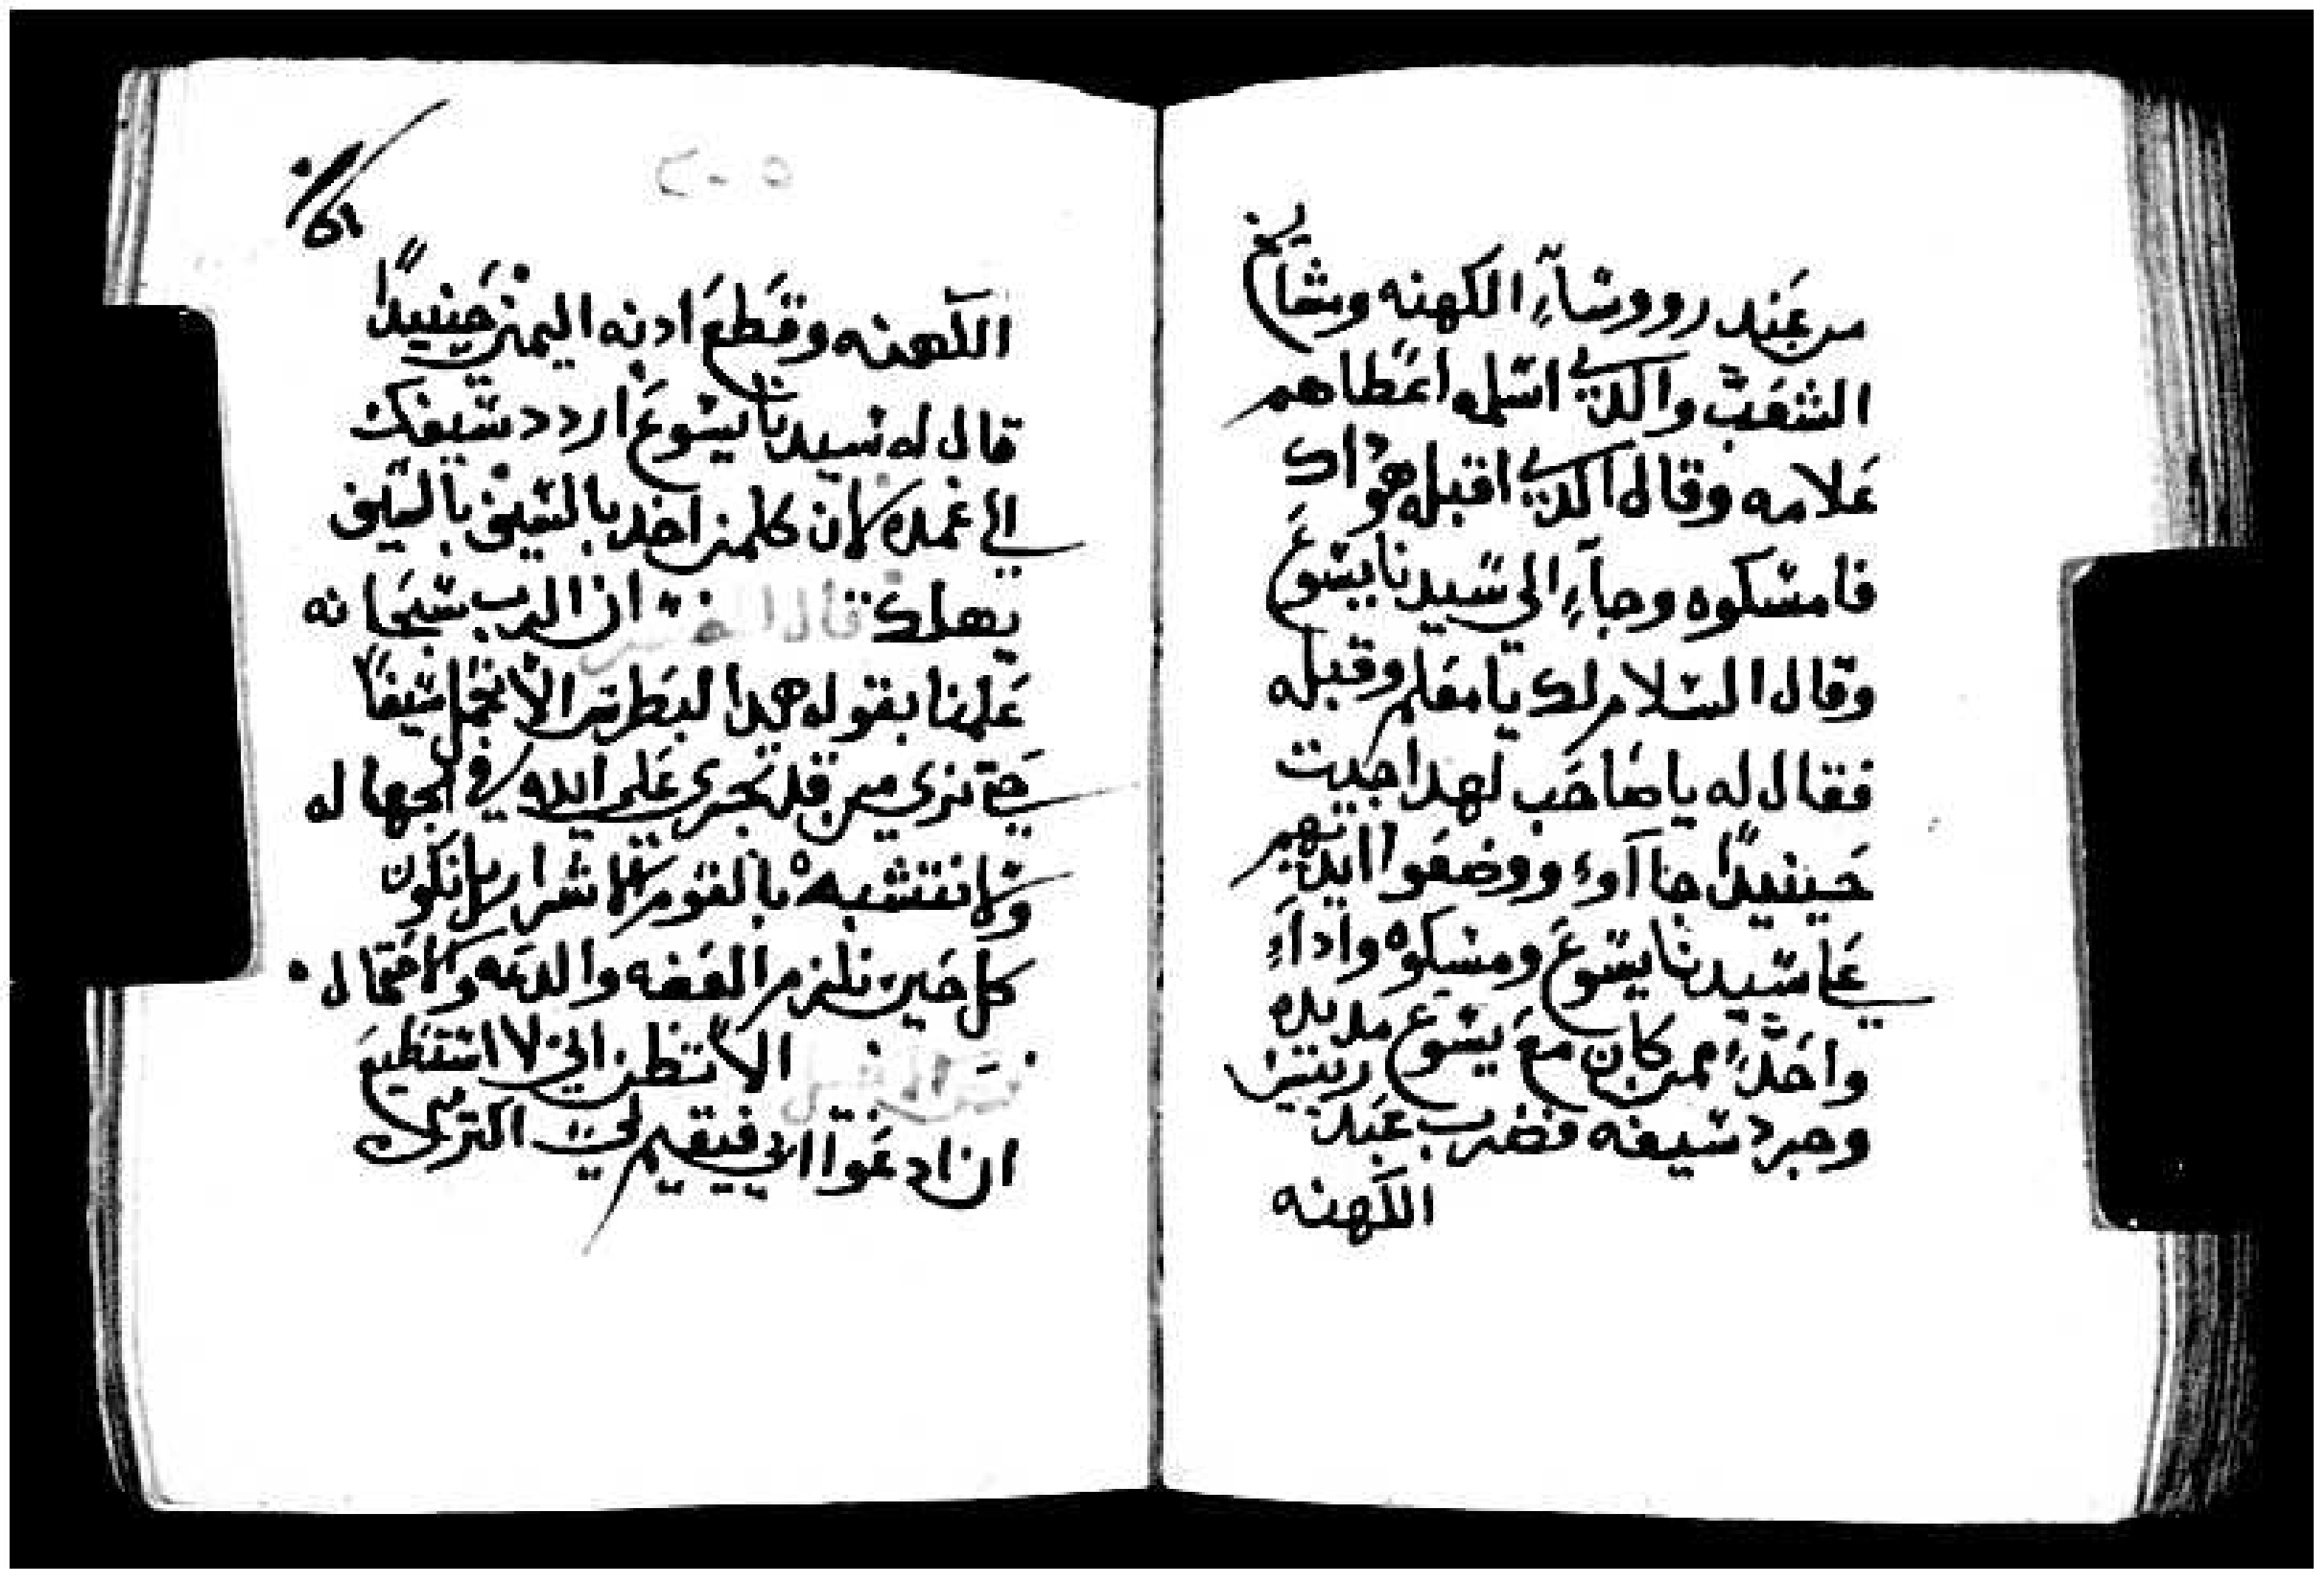 من عند رووساء الكهنه ومشايخ
الشعب والذي اسلمه اعطاهم
علامه وقال الذي اقبله هو داك
فامسكوه وجاء الى سيدنا يسوع
وقال السلام لك يا معلم وقبله
فقال له يا صاحب لهدا جيت
حينيدًا جاآوء ووضعوا ايديهم
على سيدنا يسوع ومسكوه واداء
واحدًا ممن كان مع يسوع مد يده
وجرد سيفه فضرب عبد
الكهنه
٢٠٥
الكهنه وقطع ادنه اليمنى حينيدًا
قال له سيدنا يسوع اردد سيفك
الى غمده لان كلمن اخد بالسيف بالسيف
يهلك قال المفسر ان الرب سبحانه
علمنا بقوله هدا لبطرس الا نجعل سيفا
حتى نرى من قد تجرى على الله في الجهاله
ولا نتشبه بالقوم الاشرار بل نكون
كل حين نلزم العفه والدعه والاحتمال
الا تظن اني لا استطيع
ان ادعوا ابي فيقيم لي اكتر من